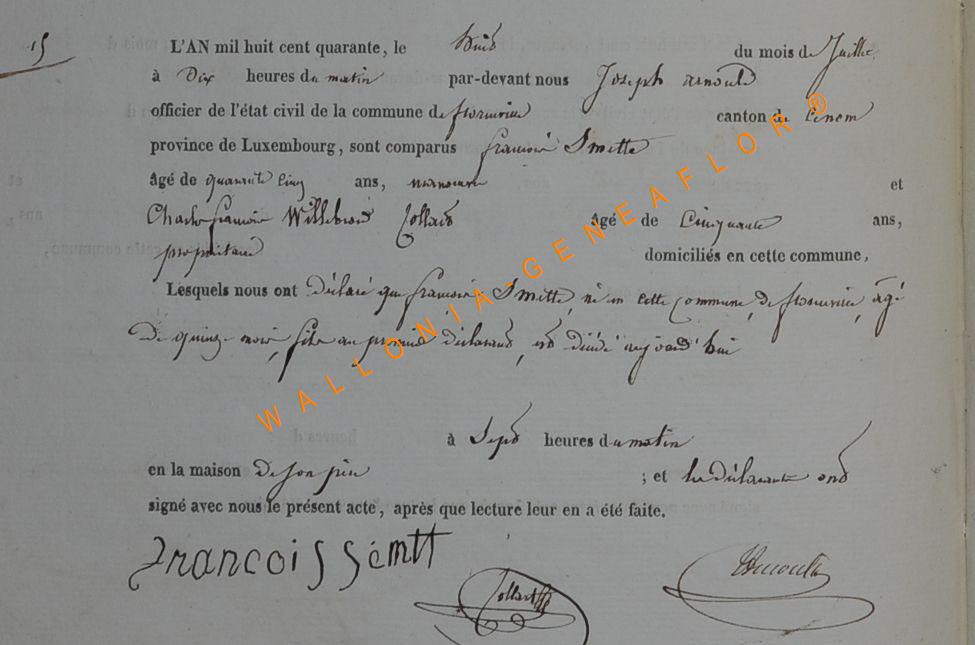 15
L'AN mil huit cent quarante, le huit du mois de Juillet
à Dix heures du matin par-devant nous Joseph arnould
officier de l'état civil de la commune de florenville canton de
province de Luxembourg, sont comparus francois Smette
Agé de quarante cinq ans, manoeuvre et
Charles francois Willebrord Collard Agé de Cinquante ans,
propriétaire domiciliés en cette commune,
Lesquels nous ont déclaré que francois Smette, né en cette commune de florenville, âgé
De quinze mois, fils au premier déclarant, est décédé aujourd'hui
à Sept heures du matin
en la maison de son père ; et les déclarants ont
signé avec nous le présent acte, après que lecture leur en a été faite.
francois Sémtt
Collard
Arnould
WALLONIA GENEAFLOR ®